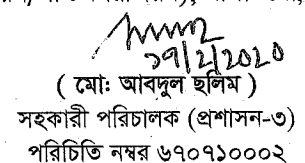 ১৭/২/২০২০
( মোঃ আবদুল ছলিম )
সহকারী পরিচালক (প্রশাসন-৩)
পরিচিতি নম্বর ৬৭০৭১০০০২